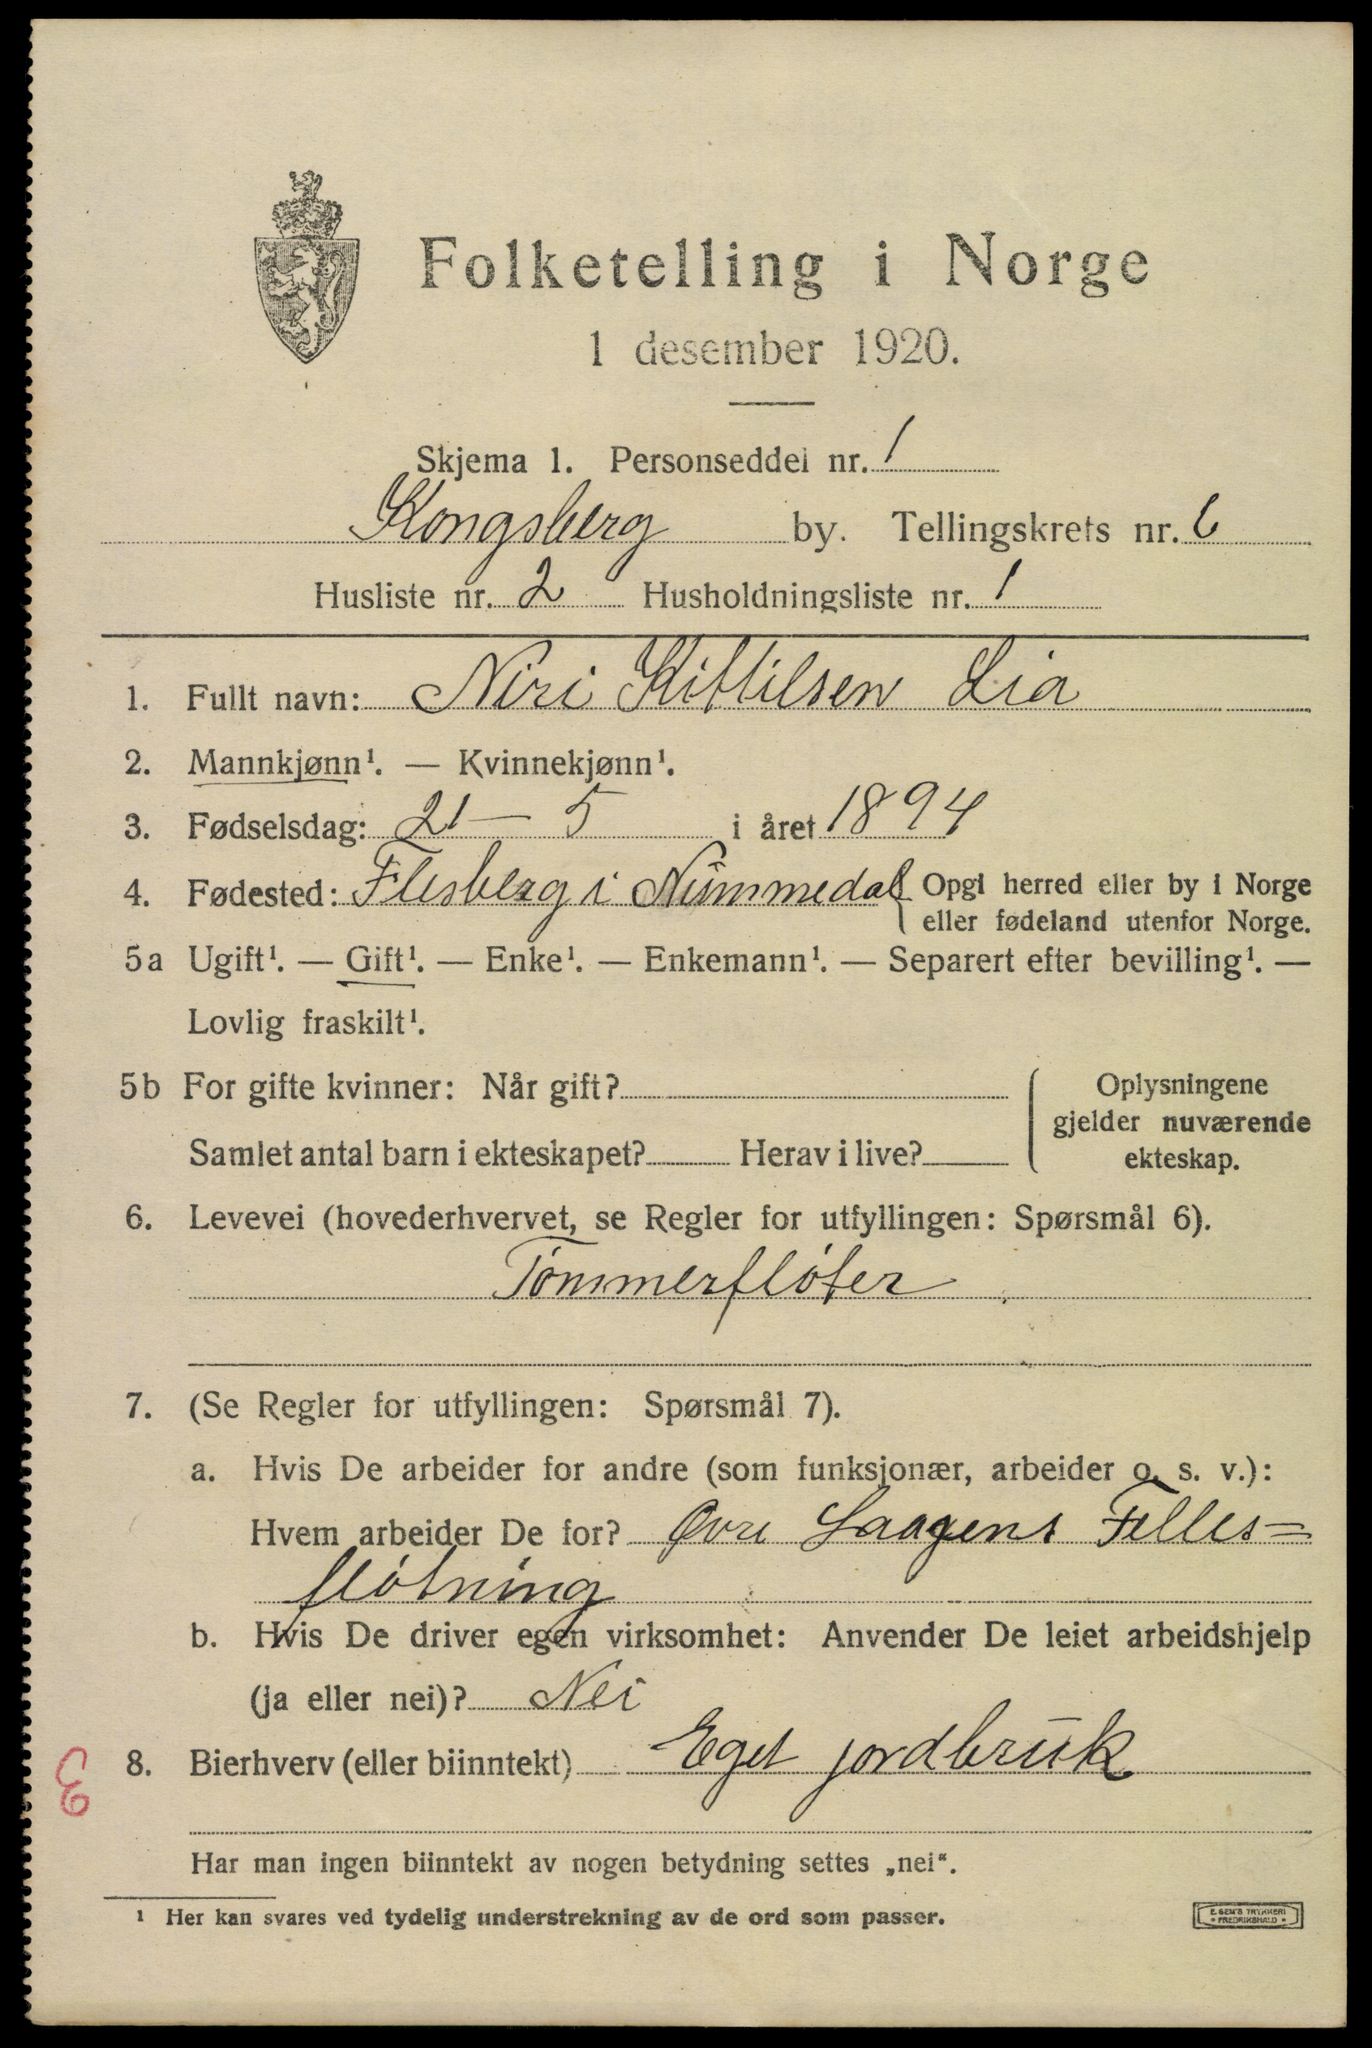 Folketelling i Norge
1 desember 1920.
Skjema 1. Personseddel nr. 1
Kongsberg by. Tellingskrets nr. 6
Husliste nr. 2 Husholdningsliste nr. 1
1. Fullt navn: Niri Kittilsen Lia
2. Mannkjønn¹. — Kvinnekjønn¹.
3. Fødselsdag: 21 – 5 i året 1894
4. Fødested: Flesberg i Nummedal { Opgi herred eller by i Norge
eller fødeland utenfor Norge.
5a Ugift¹. — Gift¹. — Enke¹. — Enkemann¹. — Separert efter bevilling¹. —
Lovlig fraskilt¹.
5b For gifte kvinner: Når gift?
Samlet antal barn i ekteskapet? Herav i live?
Oplysningene
gjelder nuværende
ekteskap.
6. Levevei (hovederhvervet, se Regler for utfyllingen: Spørsmål 6).
Tømmerfløter
7. (Se Regler for utfyllingen: Spørsmål 7).
a. Hvis De arbeider for andre (som funksjonær, arbeider o. s. v.):
Hvem arbeider De for? Øvre Laagens Felles=
fløtning
b. Hvis De driver egen virksomhet: Anvender De leiet arbeidshjelp
(ja eller nei)? Nei
8. Bierhverv (eller biinntekt) Eget jordbruk
Har man ingen biinntekt av nogen betydning settes „nei“.
¹ Her kan svares ved tydelig understrekning av de ord som passer.
E. SEM'S TRYKKERI
* FREDRIKSHALD *